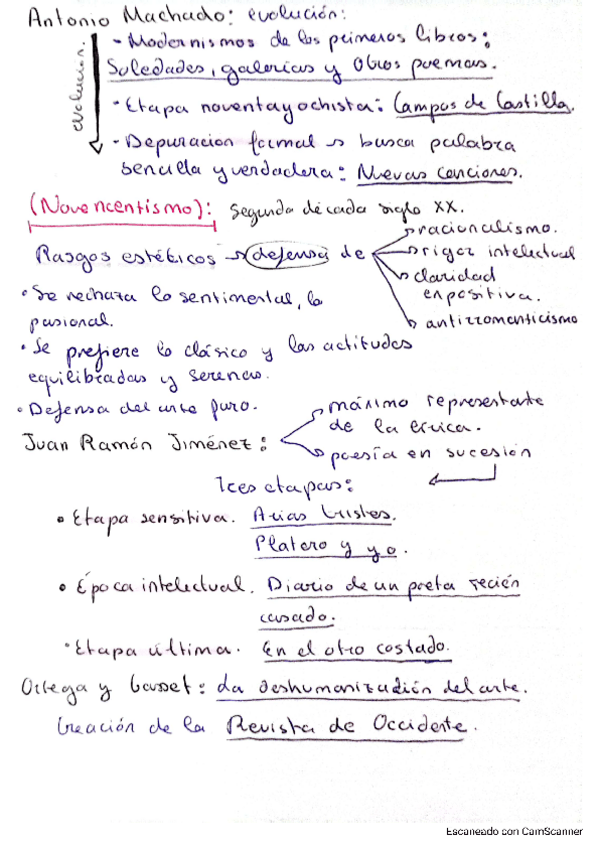 Antonio Machado: evolución:
evolución.
- Modernismos de los primeros libros:
Soledades, galerías y Otros poemas.
- Etapa noventayochista: Campos de Castilla.
- Depuración formal → busca palabra
sencilla y verdadera: Nuevas canciones.
(Novencentismo): Segunda década siglo XX.
Rasgos estéticos → defensa de
→ racionalismo.
→ rigor intelectual
→ claridad
expositiva.
→ antirromanticismo
• Se rechaza lo sentimental, lo
pasional.
• Se prefiere lo clásico y las actitudes
equilibradas y serenas.
• Defensa del arte puro.
Juan Ramón Jiménez:
→ máximo representante
de la lírica.
→ poesía en sucesión
Tres etapas:
• Etapa sensitiva. Arias tristes.
Platero y yo.
• Época intelectual. Diario de un poeta recién
casado.
• Etapa última. En el otro costado.
Ortega y Gasset: La deshumanización del arte.
Creación de la Revista de Occidente.
Escaneado con CamScanner